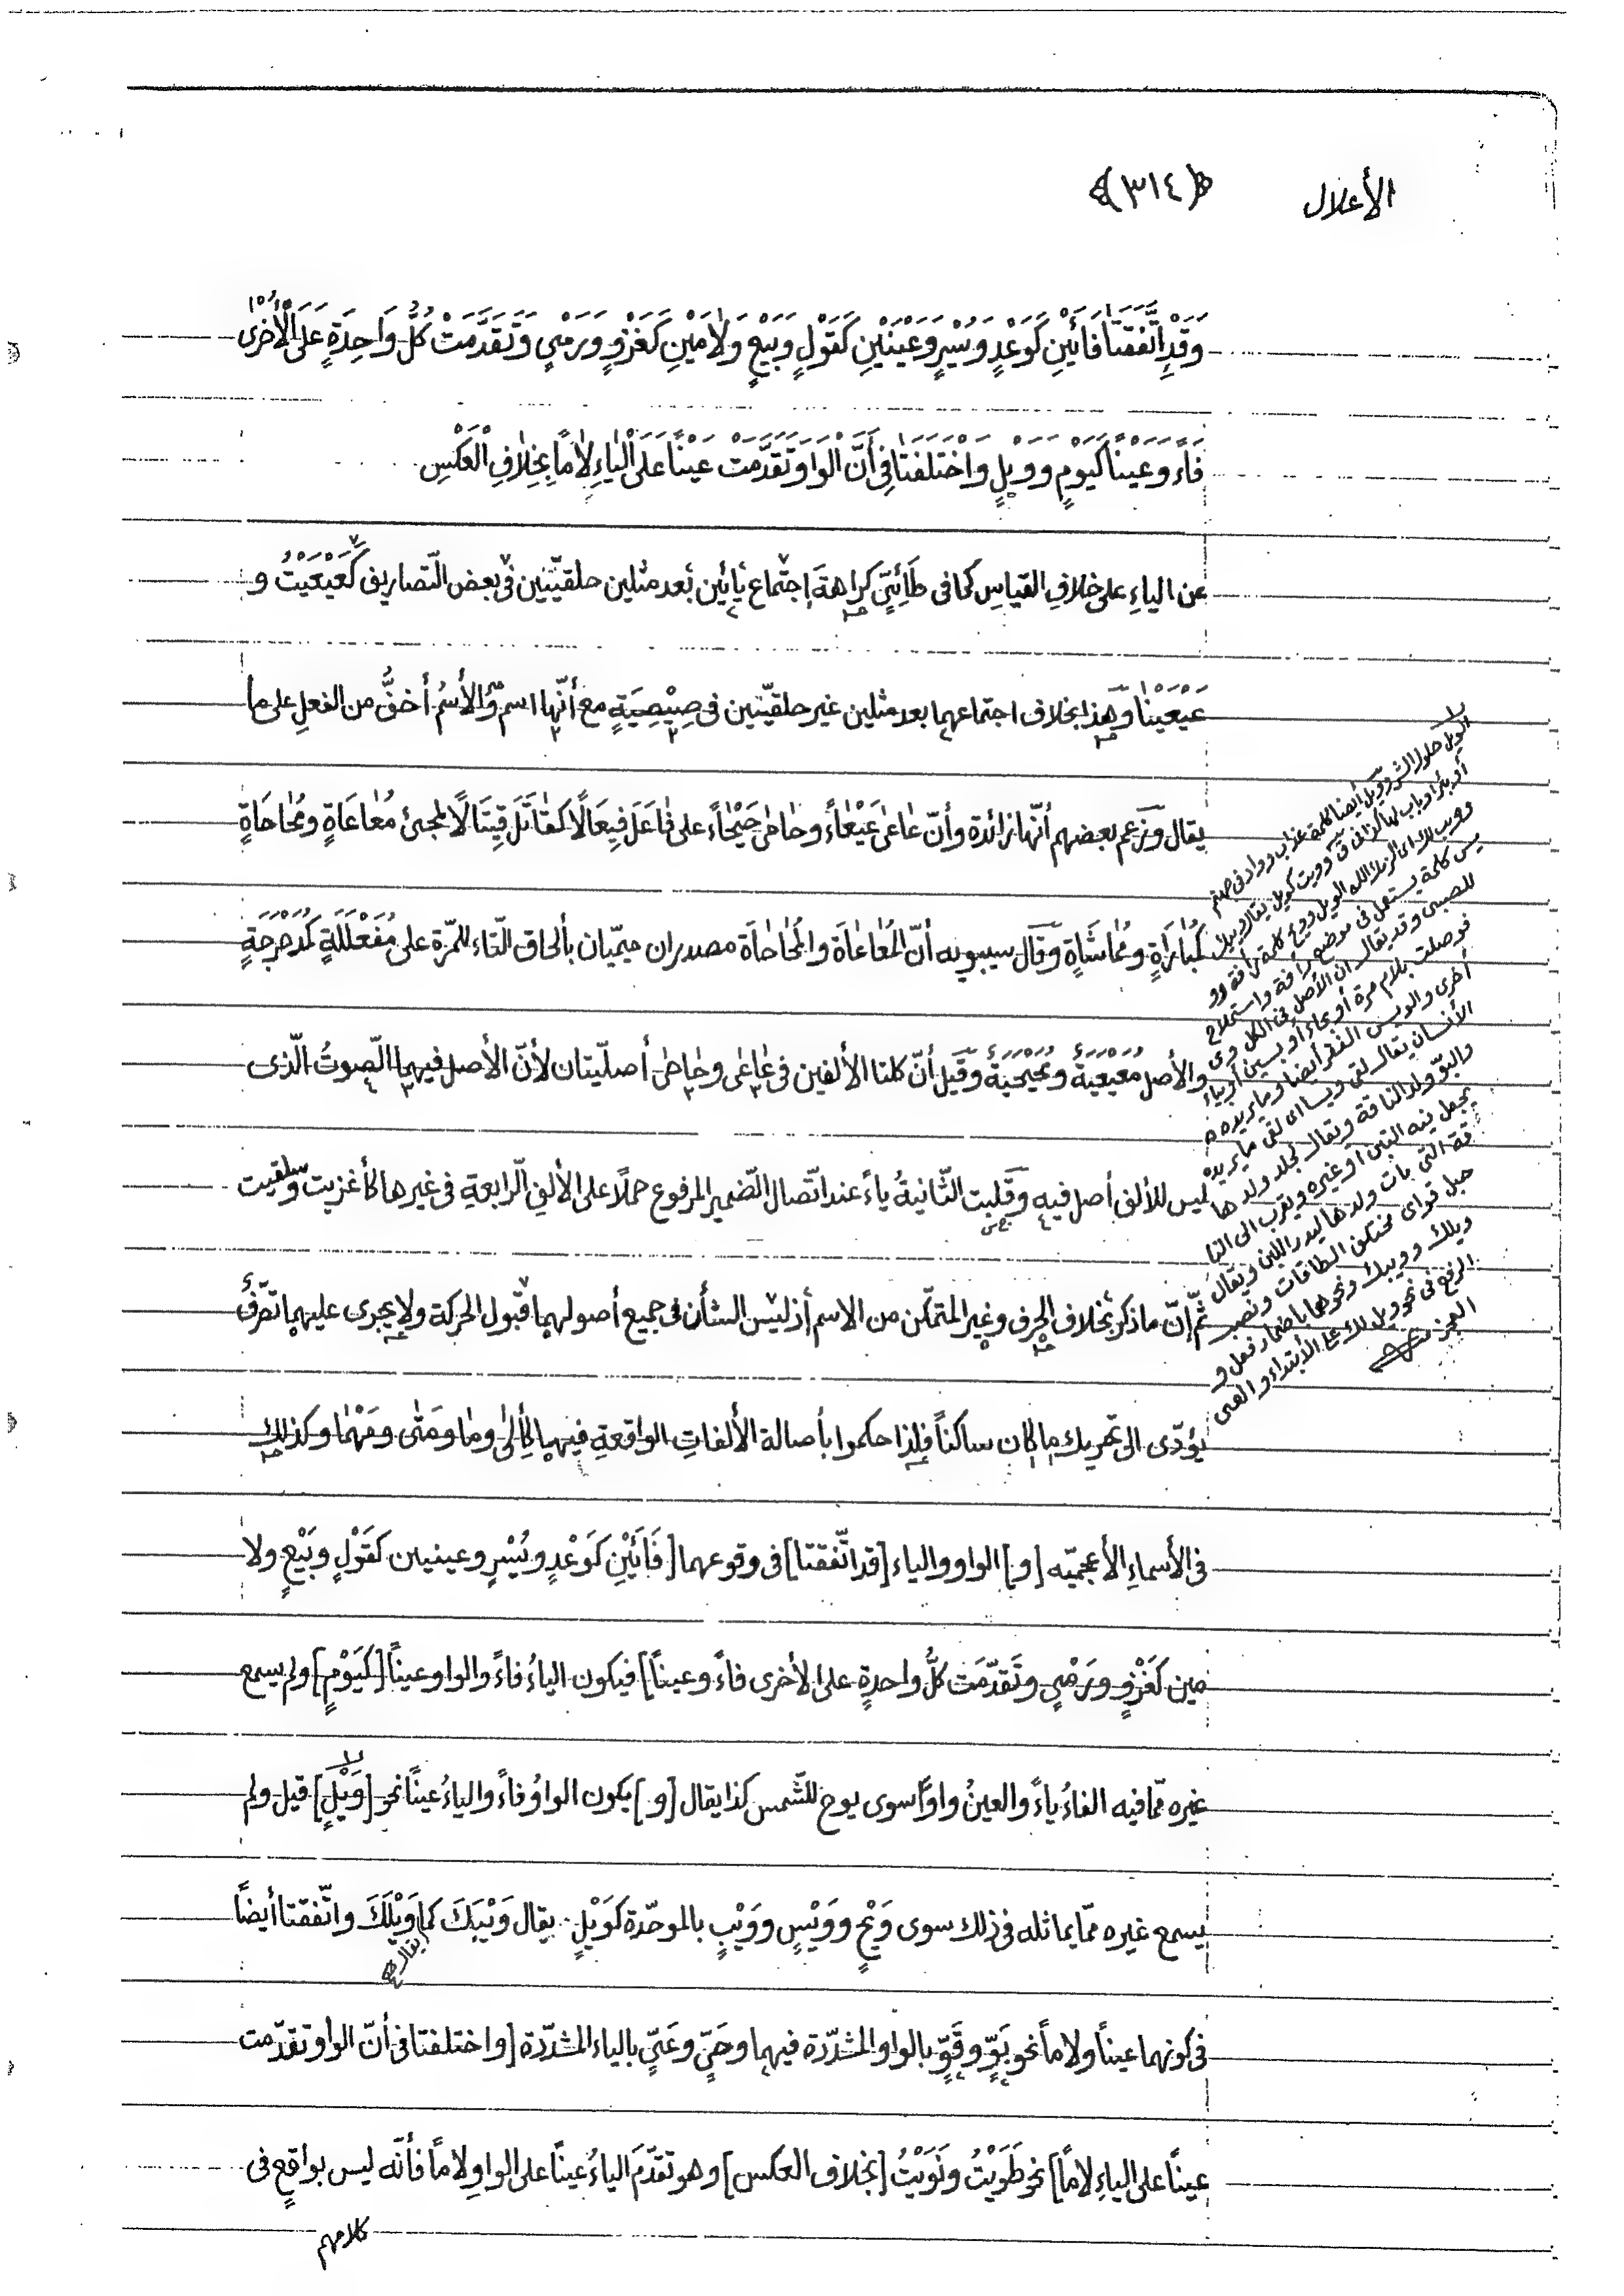 الأعلال ﴿٣١٤﴾
وَقَدِ اتَّفَقَتَا فَائَيْنِ كَوَعْدٍ وَيُسْرٍ وَعَيْنَيْنِ كَقَوْلٍ وَبَيْعٍ وَلَامَيْنِ كَغَزْوٍ وَرَمْيٍ وَتَقَدَّمَتْ كُلُّ وَاحِدَةٍ عَلَى الْأُخْرٰى
فَاءً وَعَيْنًا كَيَوْمٍ وَوَيْلٍ وَاخْتَلَفَتَا فِي أَنَّ الْوَاوَ تَقَدَّمَتْ عَيْنًا عَلَى الْيَاءِ لَامًا بِخِلَافِ الْعَكْسِ
عن الياءِ على خلافِ القياسِ كما فى طَائِيٍّ كراهةَ إجتماع يائين بعد مثلين حلقيّتين فى بعض التّصاريف كَعَيْعَيْتُ و
عَيْعَيْنَا وهذا بخلاف اجتماعهما بعد مثلين غير حلقيّتين فى صِيْصِيَةٍ مع أنّها اسم والأسمُ أخفُّ من الفعلِ على ما
يقال وزعم بعضهم أنّها زائدة وأنّ عَاعَى عَيْعَاءً وحَاحَى حَيْحَاءً على فَاعَلَ فِيعَالًا كقَاتَلَ قِيتَالًا لمجئ مُعَاعَاةٍ ومُحَاحَاةٍ
كمُبَارَاةٍ ومُمَاشَاةٍ وقال سيبويه أنّ المُعَاعَاة والمُحَاحَاة مصدران ميميّان بألحاق التّاء للمرّة على مُفَعْلَلَةٍ كمُدَحْرَجَةٍ
والأصل مُعَيْعَيَةٌ ومُحَيْحَيَةٌ وقيل أنّ كلتا الألفين فى عَاعَى وحَاحَى أصليّتان لأنّ الأصل فيهما الصّوتُ الّذى
ليس للألف أصل فيه وقلبت الثّانيةُ ياءً عند اتّصال الضّمير المرفوع حملًا على الألفِ الرّابعةِ فى غيرها كأغزيت وسلقيت
ثمّ إنّ ما ذكر بخلاف الحرف وغير المتمكّن من الاسم أذ ليس الشأن فى جميع أصولهما قبول الحركة ولا يجرى عليهما تصرّفٌ
يؤدّى الى تحريك ما كان ساكناً فلذا حكموا بأصالة الألفاتِ الواقعةِ فيهما كألى وما ومَتى ومَهْما وكذلك
فى الأسماءِ الأعجميّه [و] الواو والياء [قد اتّفقتا] فى وقوعهما [فَائَيْنِ كَوَعْدٍ ويُسْرٍ وعينين كقَوْلٍ وبَيْعٍ ولا
مين كَغَزْوٍ ورَمْيٍ وتَقَدّمَت كلُّ واحدةٍ على الأخرى فاءً وعيناً] فيكون الياءُ فاءً والواو عيناً [كَيَوْمٍ] ولم يسمع
غيره ممّا فيه الفاءُ ياءً والعينُ واوًا سوى يوح للشّمس كذا يقال [و] يكون الواوُ فاءً والياءُ عيناً نحو [وَيْلٍ] قيل ولم
يسمع غيره ممّا يماثله فى ذلك سوى وَيْحٍ ووَيْسٍ ووَيْبٍ بالموحّدة كوَيْلٍ يقال وَيْبَكَ كما وَيْلَكَ واتّفقتا أيضاً
يقال
فى كونهما عيناً ولاماً نحو بَوٍّ وقَوٍّ بالواو المشدّدة فيهما وحَيٍّ وعَيٍّ بالياء المشدّدة [واختلفتا فى أنّ الواو تقدّمت
عيناً على الياءِ لاماً] نحو طَوَيْتُ ونَوَيْتُ [بخلاف العكس] وهو تقدّمَ الياءُ عيناً على الواوِ لاماً فأنّه ليس بواقعٍ فى
كلامهم
الويل حلول الشر وويل أيضا كلمة عذاب وواد فى جهنم
أو بئر أو باب لها
وويب لك اى الزمك الله الويل وويح كلمة رأفة وو
يس كلمة يستعمل فى موضع رأفة واستملاح
للصبى وقد يقال ان الأصل فى الكل وى
فوصلت بلام مرة أو بحاء أو بسين أو بياء
أخرى والويس الفقر أيضا وما يريده
الأنسان يقال لقى ويسا اى لقى ما يريده
والبوّ ولد الناقة ويقال لجلد ولدها
يجعل فيه التبن أو غيره ويقرب الى النا
قة التى مات ولدها ليدر اللبن ويقال
حبل قو اى مختلف الطاقات ونصب
ويلك وويبك ونحوهما باضمار فعل و
الرفع فى نحو ويل لك على الأبتداء والعى
العجز